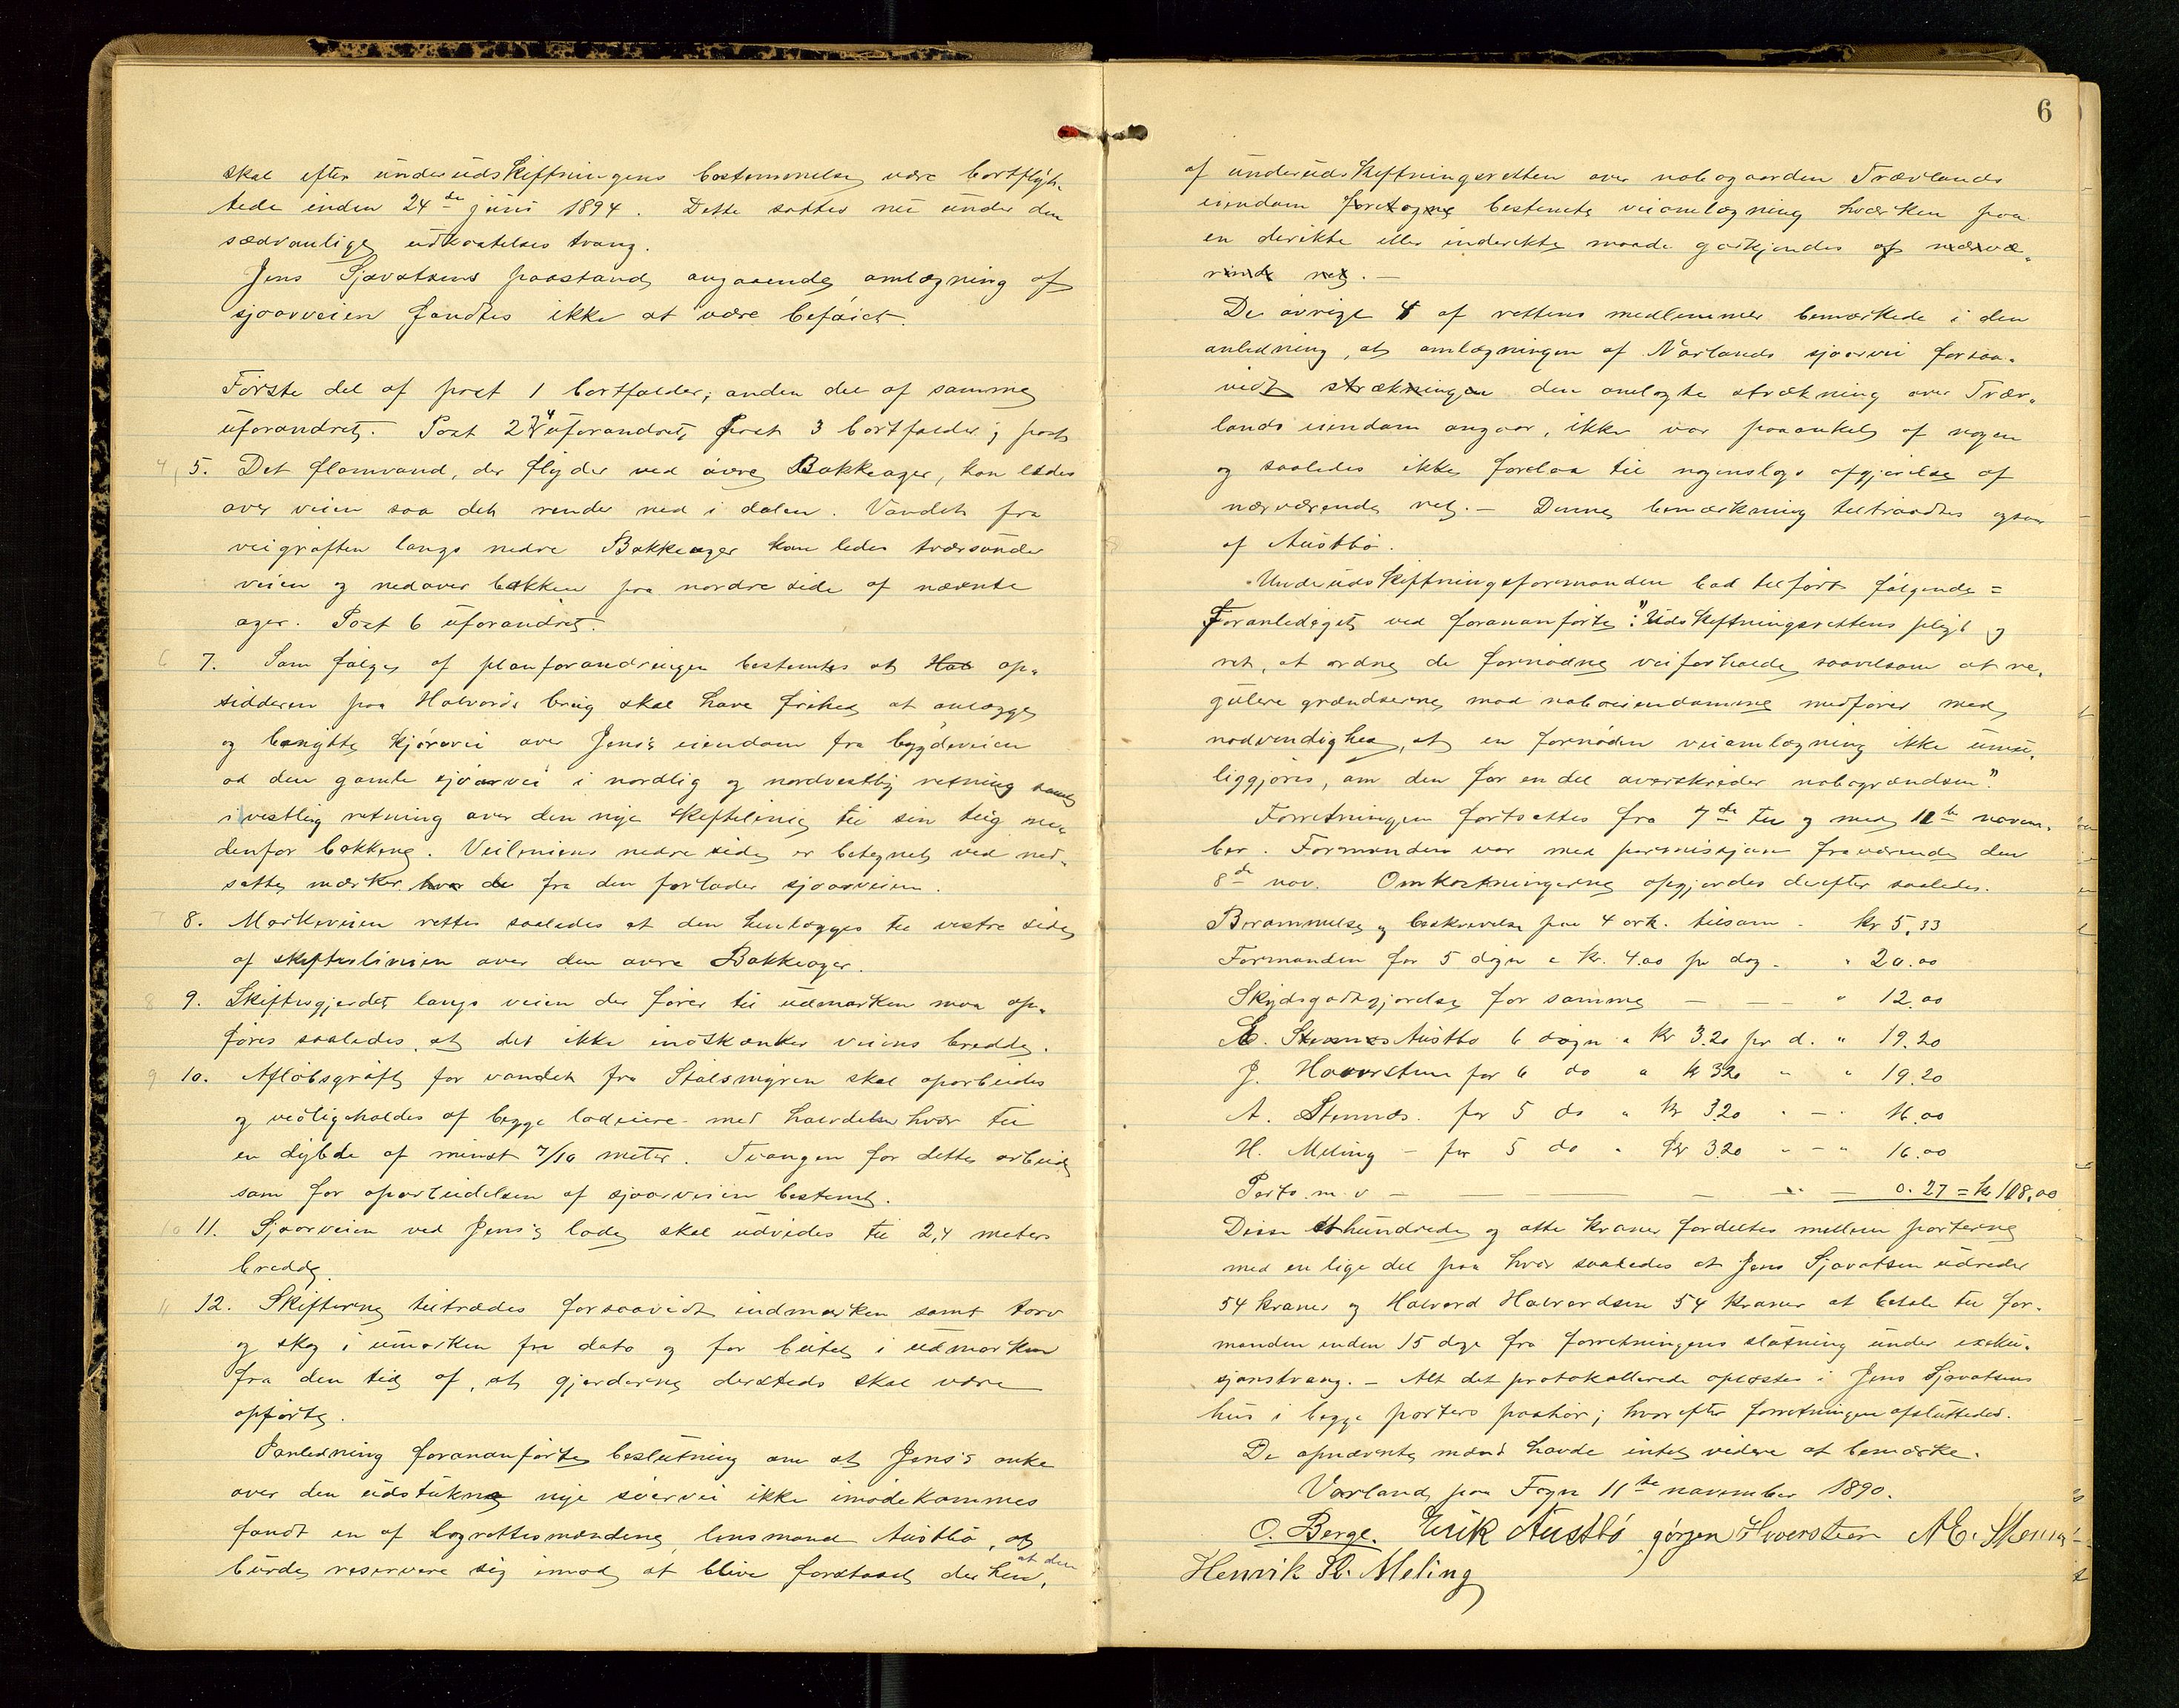 skal efter underudskiftningens bestemmelse være bortflyt-
tede inden 24de juni 1894. Dette sattes nu under den
sædvanlige udkastelses tvang.
Jens Sjovatsens paastand angaaende omlægning af
sjøarveien fandtes ikke at være beføiet.
Første del af post 1 bortfalder; anden del af samme
uforandret. Post 2 4 uforandret, post 3 bortfalder; post
4, 5. Det flomvand, der flyder ved øvre Bakkeager, kan ledes
over veien saa det render ned i dalen. Vandet fra
veigrøften langs nedre Bakkeager kan ledes tværsunder
veien og nedover bakken paa nordre side af nævnte
ager. Post 6 uforandret.
6 7. Som følge af planforandringen bestemtes at Hal op-
sidderen paa Halvords brug skal have frihed at anlægge
og benytte kjørevei over Jens's eiendom fra bygdeveien
ad den gamle sjøarvei i nordlig og nordvestlig retning samt
i vestlig retning over den nye skiftelinie til sin teig ne-
denfor bakkene. Veiliniens nedre side er betegnet ved ned-
satte mærker hvor de fra den forlader sjøarveien.
7 8. Markeveien rettes saaledes at den henlægges til vestre side
af skifteslinien over den øvre Bakkeager.
8 9. Skiftesgjerdet langs veien der fører til udmarken maa op-
føres saaledes, at det ikke indskænker veiens bredde.
9 10. Afløbsgrøft for vandet fra Stølsmyren skal oparbeides
og vedligeholdes af begge lodeiere med halvdelen hver til
en dybde af mindst 7/10 meter. Tvangen for dette arbeide
som for oparbeidelsen af sjøarveien bestemt.
10 11. Sjøarveien ved Jens's lade skal udvides til 2,4 meters
bredde.
11 12. Skifterne tiltrædes forsaavidt indmarken samt torv
og skog i utmarken fra dato og for beitet i udmarken
fra den tid af, at gjerderne dersteds skal være
opførte.
I anledning foranførte beslutning om at Jens's anke
over den udstukne nye sjøarvei ikke imødekommes
fandt en af lagrettesmændene, lensmand Austbø, at
burde reservere sig imod at blive forstaaet derhen, at den
6
af underudskiftningsretten over nabogaarden Trævlands
eiendom foretagne bestemte veiomlægning hværken paa
en direkte eller inderekte maade godkjendes af nærvæ-
rende ret. —
De øvrige 4 af rettens medlemmer bemærkede i den
anledning, at omlægningen af Varlands sjøarvei forsaa-
vidt strækningen den omlagte strækning over Træv-
lands eiendom angaar, ikke var paaanket af nogen
og saaledes ikke forelaa til nogenslags afgjørelse af
nærværende ret. — Denne bemærkning tiltraadtes ogsaa
af Austbø.
Underudskiftningsformanden bad tilført følgende =
Foranlediget ved foranførte: "Udskiftningsrettens pligt og
ret, at ordne de fornødne veiforholde saavelsom at re-
gulere grændserne mod naboeiendomme medfører med
nødvendighed, at en fornøden veiomlægning ikke umu-
liggjøres, om den for en del overskrider nabogrændsen."
Forretningen fortsattes fra 7de til og med 11te novem-
ber. Formanden var med permissjon fraværende den
8de nov. Omkostningerne opgjordes derefter saaledes.
Berammelse og beskrivelse paa 4 ark. tilsam - kr 5,33
Formanden for 5 døgn a kr. 4.00 pr dag - " 20.00
Skydsgodtgjørelse for samme — — — " 12.00
E. Stennes Austbø 6 døgn a kr 3.20 pr d. " 19.20
J. Hoverstein for 6 do a kr 3.20 " " 19.20
A. Stennæs. for 5 do " kr 3.20 " — " 16.00
H. Meling — for 5 do " kr 3.20 " — " 16.00
Porto m. v — — — — — " — 0.27 = kr 108,00
Disse ethundrede og otte kroner fordeltes mellem parterne
med en lige del paa hver saaledes at Jens Sjovatsen udreder
54 kroner og Halvord Halvordsen 54 kroner at betale til for-
manden inden 15 dage fra forretningens slutning under exeku-
sjonstvang. — Alt det protokollerede oplæstes i Jens Sjovatsens
hus i begge parters paahør; hvorefter forretningen afsluttedes.
De opnævnte mænd havde intet videre at bemærke.
Varland paa Fogn 11te november 1890.
O. Berge. Erik Austbø Jørgen Hoverstein A E. Stennes
Henrik H. Meling